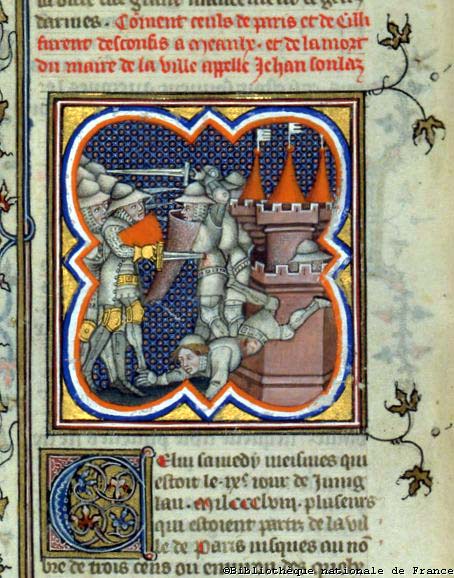 darmes. Coment ceuls de paris et de Cilli
furent desconfis a meaulx. et de la mort
du maire de la ville appelle Jehan soulaz
Celui samedy meismes qui
estoit le .ix.e iour de Juing
lan. Mil.CCC.lviii. pluseurs
qui estoient partiz de la vil
le de Paris iusques au no
bre de trois cens ou
©Bibliothèque nationale de France